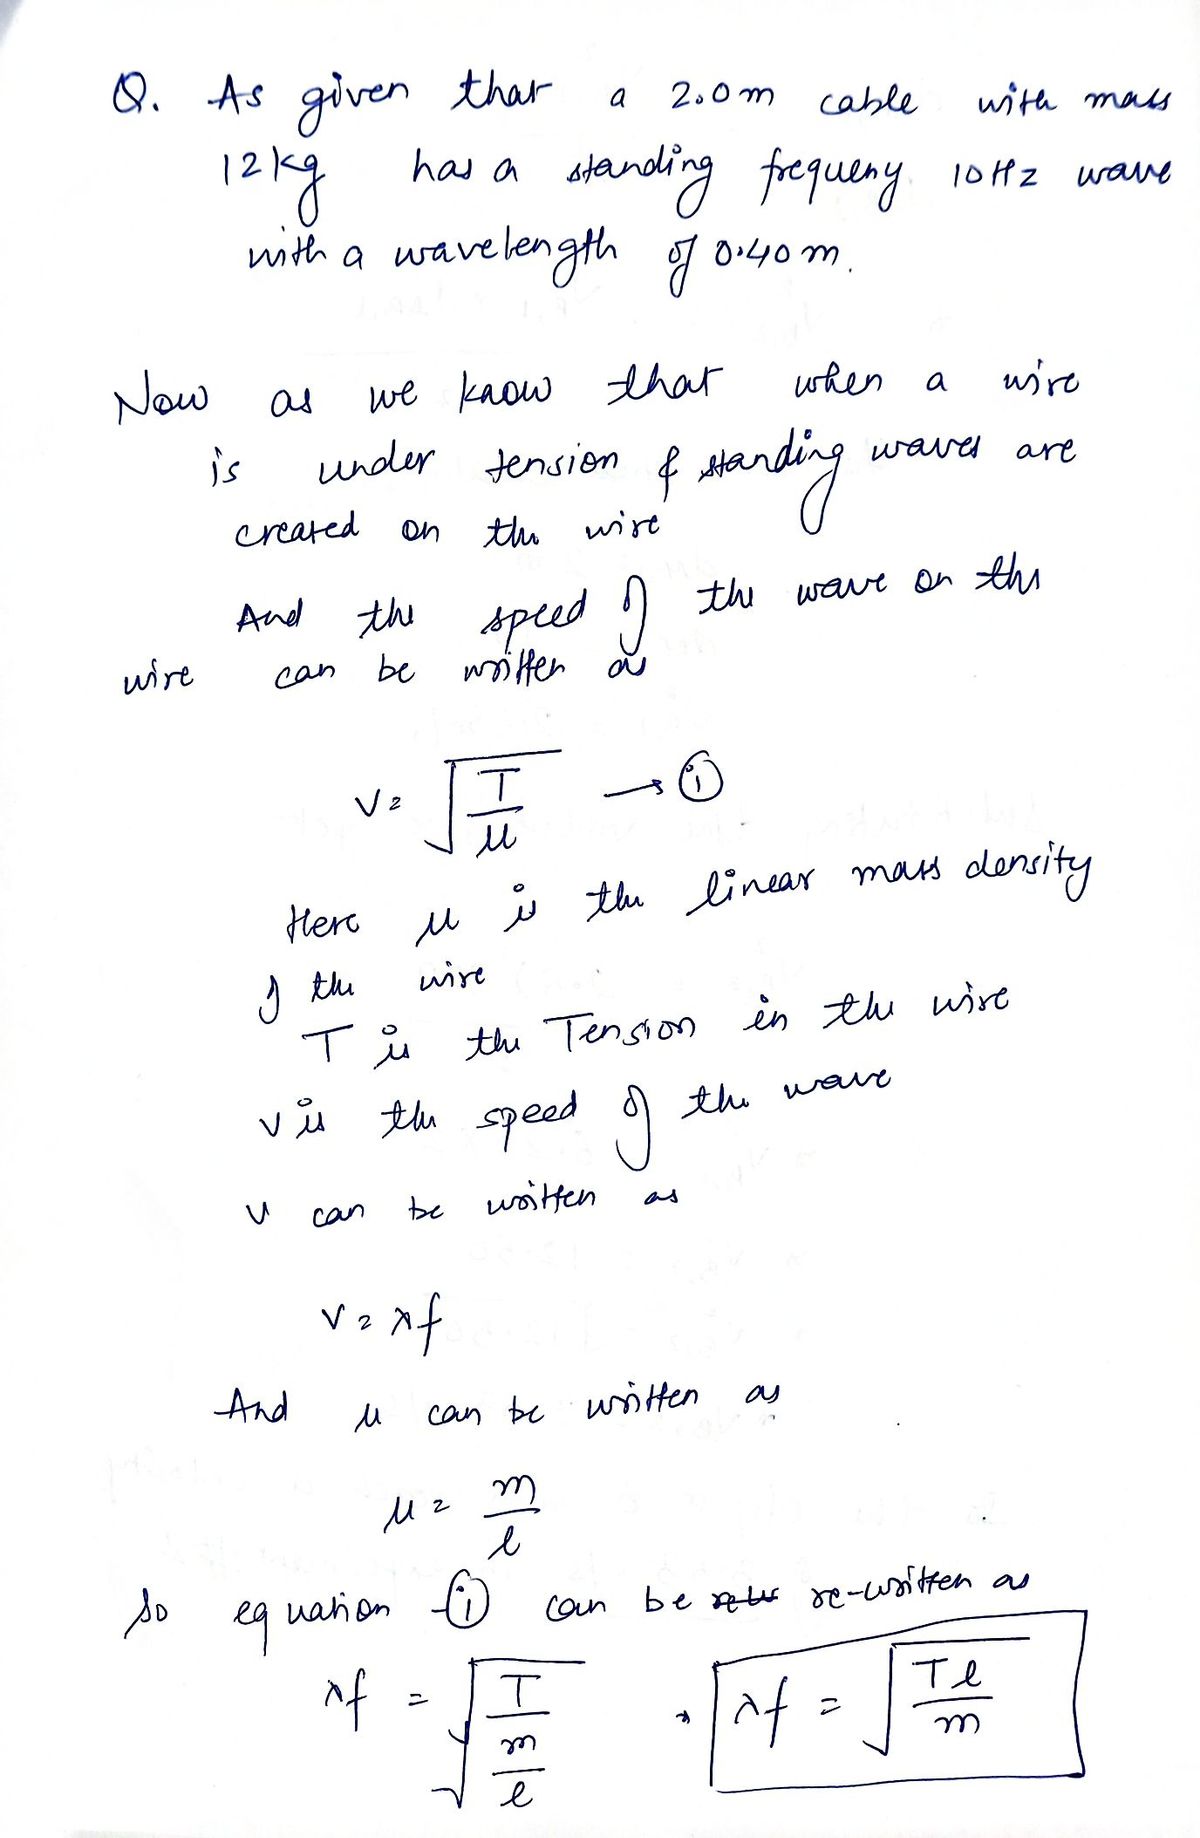 Q. As given that a 2.0m cable with mass
12kg has a standing frequeny 10Hz wave
with a wavelength of 0.40m.
Now as we know that when a wire
is under tension & standing waves are
created on the wire
And the speed of the wave on the
wire can be written as
v = √(T/μ) → ①
Here μ is the linear mass density
of the wire
T is the Tension in the wire
v is the speed of the wave
v can be written as
v = λf
And μ can be written as
μ = m/l
So equation ① can be re-written as
λf = √(T/(m/l)) → λf = √(Tl/m)